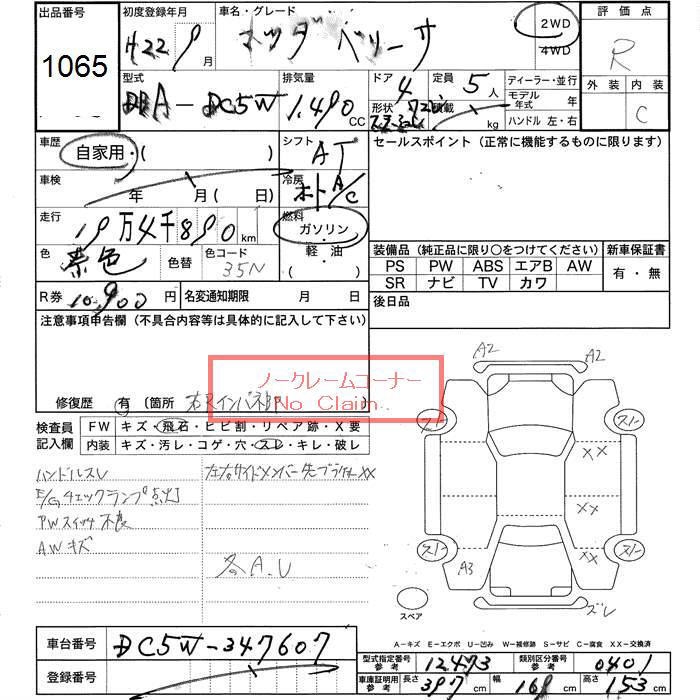 出品番号 初度登録年月 車名・グレード 2WD 4WD 評価点
1065 H22 9月 マツダ ベリーサ R
型式 排気量 ドア 4 定員 5人 ディーラー・並行 外装 内装
DBA-DC5W 1.490 CC 形状 積載 kg モデル年式 年 C
ハンドル 左・右
車歴 自家用・( ) シフト AT セールスポイント (正常に機能するものに限ります)
車検 年 月 (日) 冷房 A/C
走行 19万4千890km 燃料 ガソリン・軽・油 ( )
色 茶色 色替 色コード 35N
装備品 (純正品に限り○をつけてください) 新車保証書
PS PW ABS エアB AW 有・無
SR ナビ TV カワ
R券 10,900円 名変通知期限 月 日 後日品
注意事項申告欄 (不具合内容等は具体的に記入して下さい)
ノークレームコーナー
No Claim
修復歴 有 〔箇所 右コアインパネ
検査員記入欄 FW キズ・飛石・ヒビ割・リペア跡・X要
内装 キズ・汚レ・コゲ・穴・スレ・キレ・破レ
ハンドルスレ
E/Gチェックランプ点灯
PWスイッチ不良
AWキズ
各A.U
A2 A2
スレ スレ
XX
XX
スレ XX スレ
A3
スペア ズレ
車台番号 DC5W-347607
登録番号
A-キズ E-エクボ U-凹み W-補修跡 S-サビ C-腐食 XX-交換済
型式指定番号 参考 12473 類別区分番号 参考 0401
車庫証明用 参考 長さ 397cm 幅 169cm 高さ 153cm